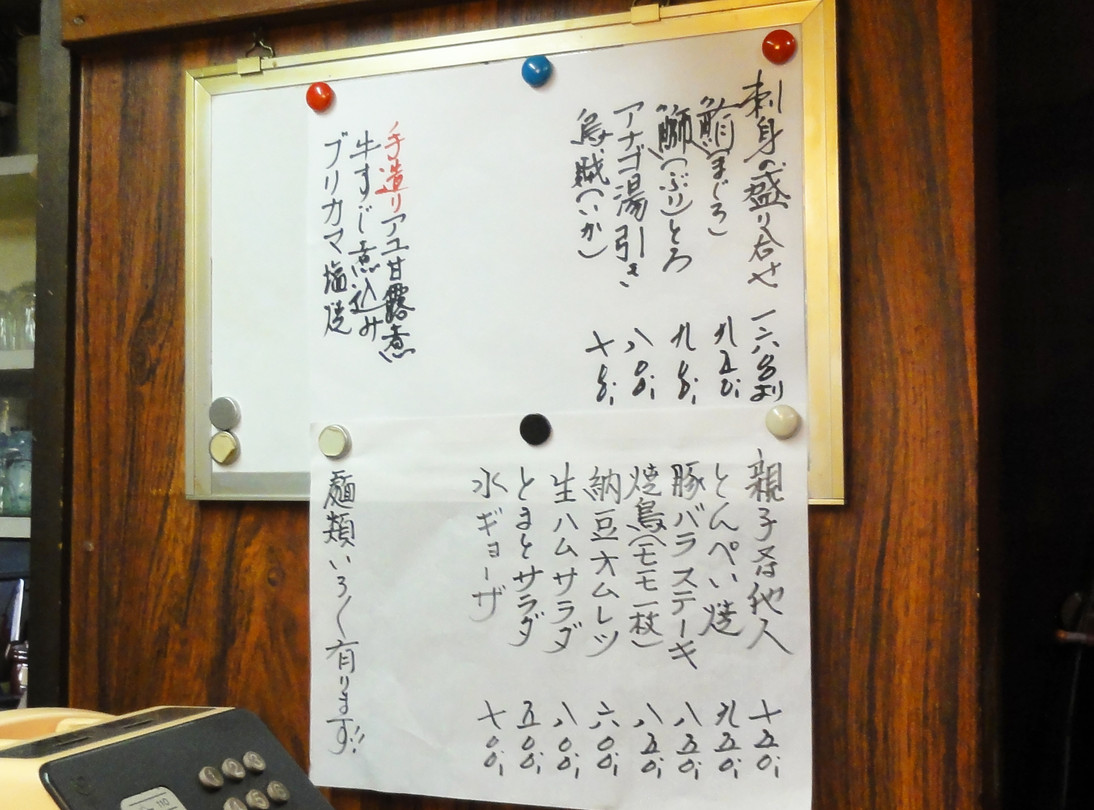 刺身の盛り合せ 一六〇〇より
鮪(まぐろ) 九五〇
鰤(ぶり)とろ 九〇〇
アナゴ湯引き 八〇〇
烏賊(いか) 七〇〇
手造りアユ甘露煮
牛すじ煮込み
ブリカマ塩焼
親子又は他人 七五〇
とんぺい焼 九五〇
豚バラステーキ 八五〇
焼鳥(モモ一枚) 八五〇
納豆オムレツ 六〇〇
生ハムサラダ 八〇〇
とまとサラダ 五〇〇
水ギョーザ 七〇〇
麺類いろ〱有ります!!